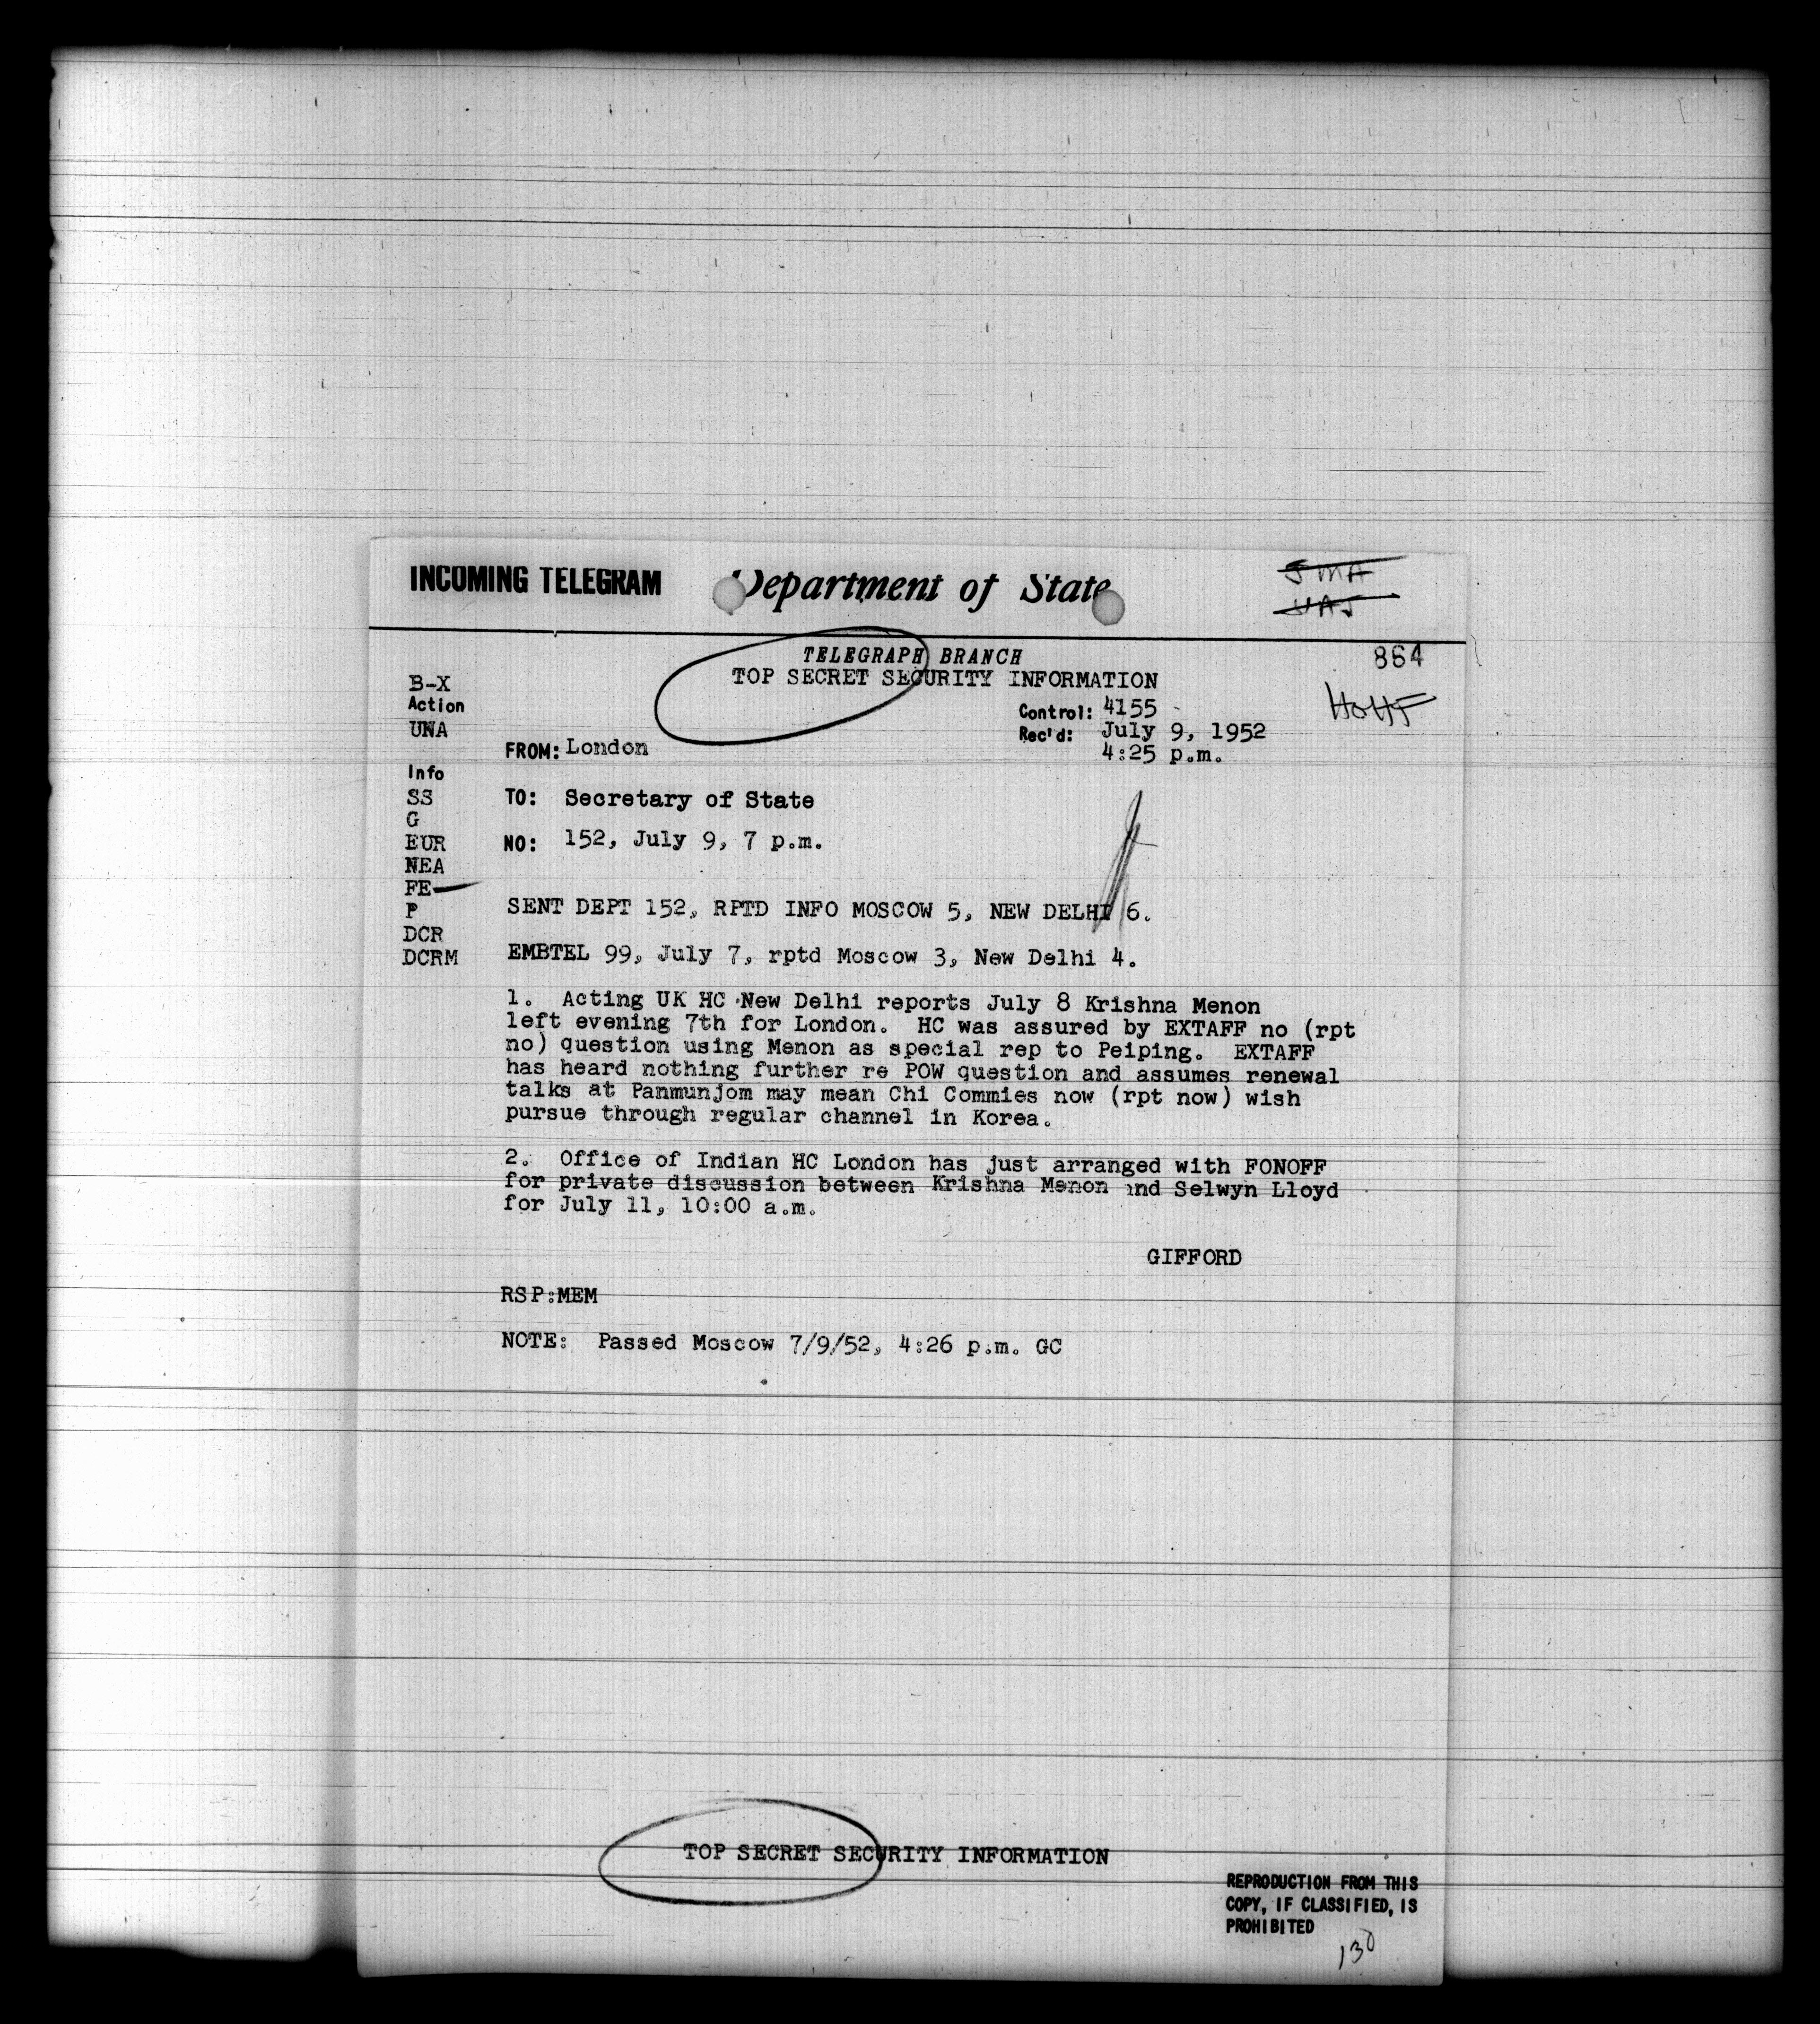 INCOMING TELEGRAM Department of State
JMA
UAJ
TELEGRAPH BRANCH
864
TOP SECRET SECURITY INFORMATION
B-X
Action
UNA
Control: 4155
Rec'd: July 9, 1952
4:25 p.m.
FROM: London
Info
SS
G
EUR
NEA
FE
P
DCR
DCRM
TO: Secretary of State
NO: 152, July 9, 7 p.m.
SENT DEPT 152, RPTD INFO MOSCOW 5, NEW DELHI 6.
EMBTEL 99, July 7, rptd Moscow 3, New Delhi 4.
1. Acting UK HC New Delhi reports July 8 Krishna Menon
left evening 7th for London. HC was assured by EXTAFF no (rpt
no) question using Menon as special rep to Peiping. EXTAFF
has heard nothing further re POW question and assumes renewal
talks at Panmunjom may mean Chi Commies now (rpt now) wish
pursue through regular channel in Korea.
2. Office of Indian HC London has just arranged with FONOFF
for private discussion between Krishna Menon and Selwyn Lloyd
for July 11, 10:00 a.m.
GIFFORD
RSP:MEM
NOTE: Passed Moscow 7/9/52, 4:26 p.m. GC
TOP SECRET SECURITY INFORMATION
REPRODUCTION FROM THIS
COPY, IF CLASSIFIED, IS
PROHIBITED
130